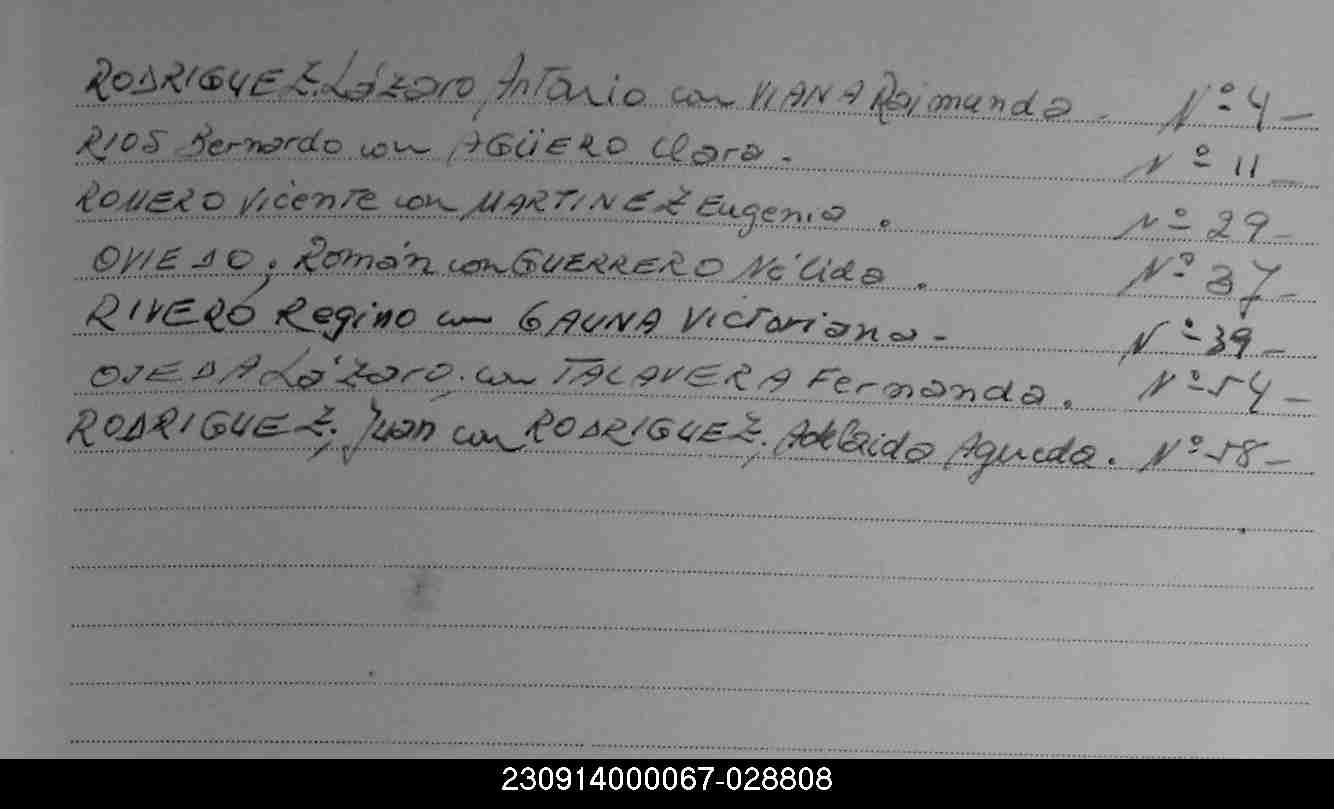 RODRIGUEZ, Lázaro Antonio con VIANA Raimunda - Nº 4 -
RIOS Bernardo con AGÜERO Clara. Nº 11 -
ROMERO Vicente con MARTINEZ Eugenia. Nº 29 -
OVIEDO, Román con GUERRERO Nélida. Nº 37 -
RIVERO, Regino con GAUNA Victoriana - Nº 39 -
OJEDA Lázaro, con TALAVERA Fernanda. Nº 54 -
RODRIGUEZ, Juan con RODRIGUEZ, Adelaida Agueda. Nº 58 -
230914000067-028808